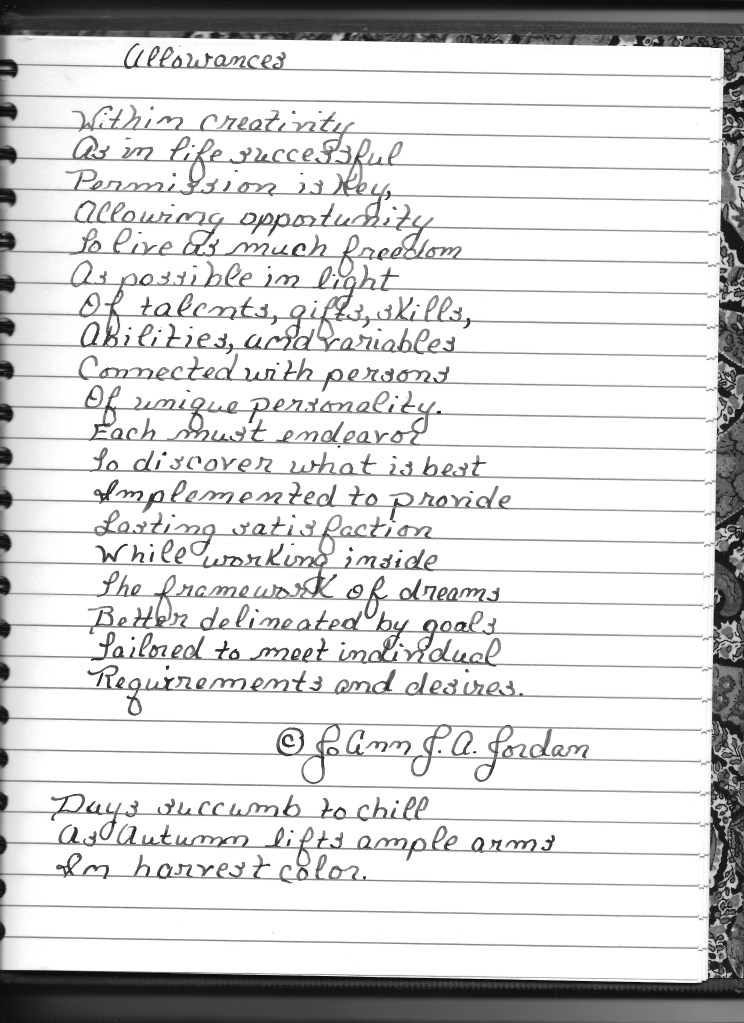 Allowances
Within creativity
As in life successful
Permission is key,
Allowing opportunity
To live as much freedom
As possible in light
Of talents, gifts, skills,
Abilities, and variables
Connected with persons
Of unique personality.
Each must endeavor
To discover what is best
Implemented to provide
Lasting satisfaction
While working inside
The framework of dreams
Better delineated by goals
Tailored to meet individual
Requirements and desires.
© JoAnn J. A. Jordan
Days succumb to chill
As Autumn lifts ample arms
In harvest color.